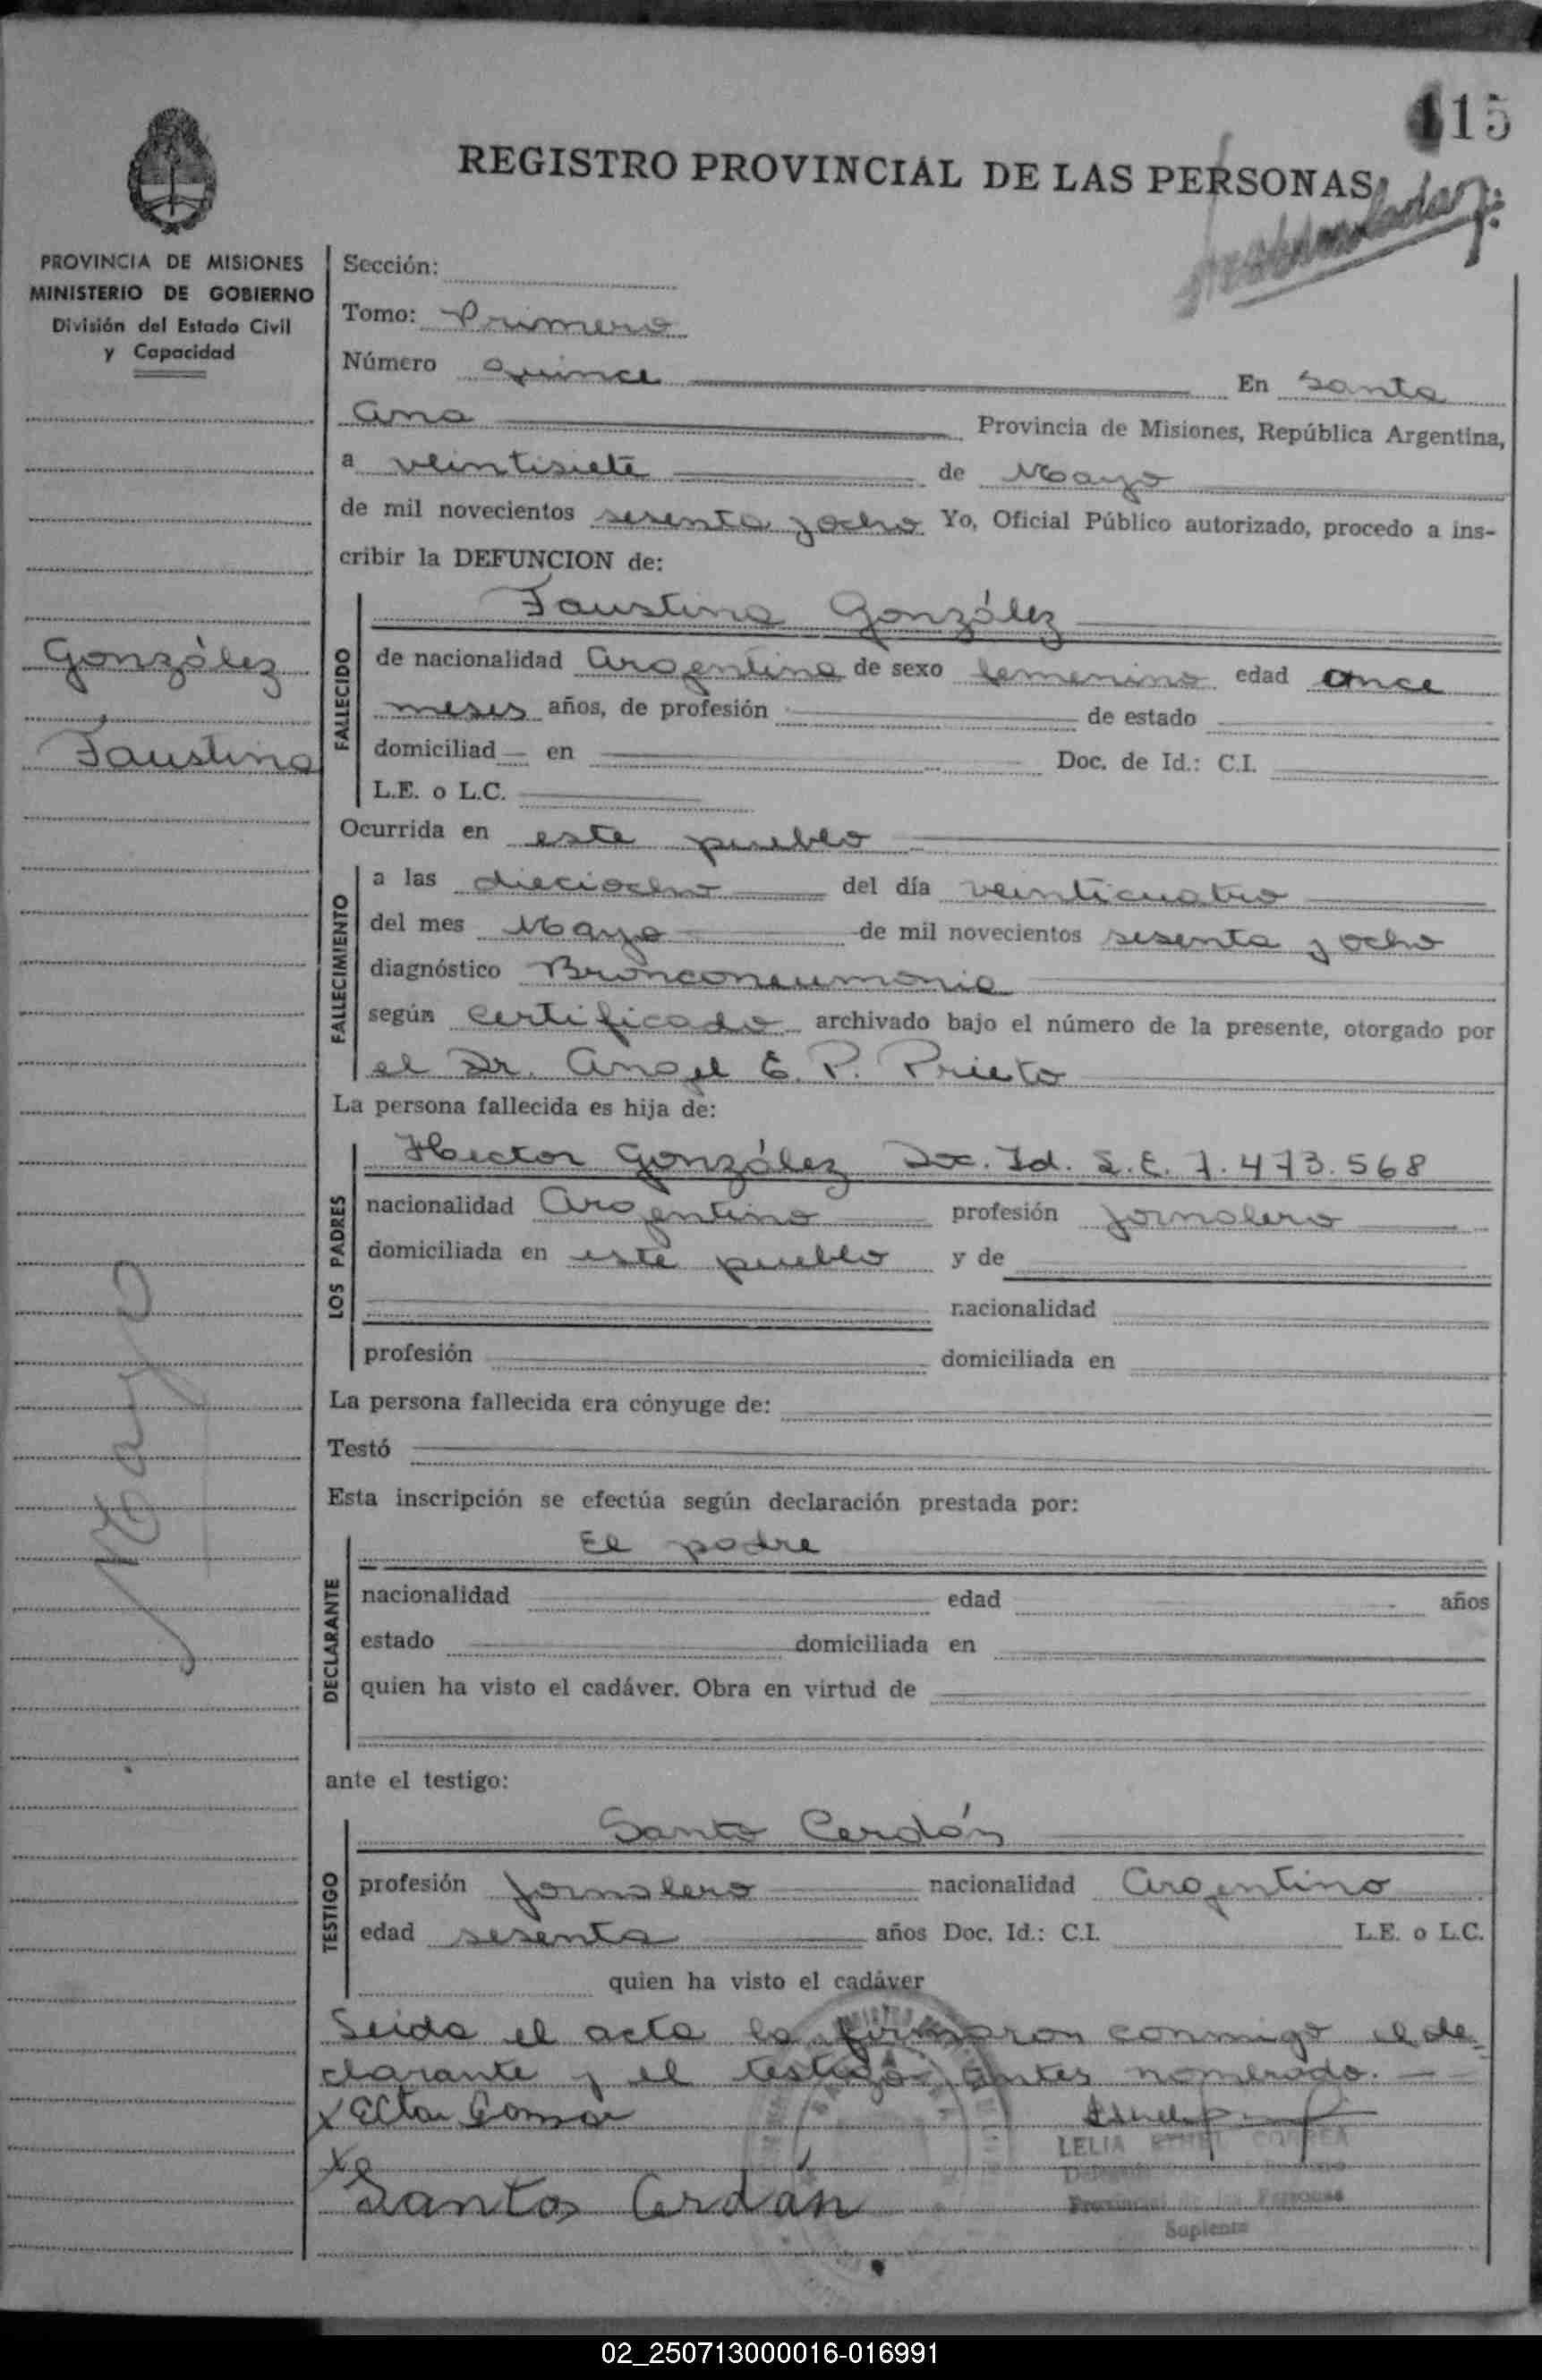 115
REGISTRO PROVINCIAL DE LAS PERSONAS
PROVINCIA DE MISIONES
MINISTERIO DE GOBIERNO
División del Estado Civil
y Capacidad
Sección:
Tomo: Primero
Número Quince En Santa
Ana Provincia de Misiones, República Argentina,
a veintisiete de Mayo
de mil novecientos sesenta y ocho Yo, Oficial Público autorizado, procedo a ins-
cribir la DEFUNCION de:
González
Faustina
Mayo
FALLECIDO
Faustina González
de nacionalidad Argentina de sexo femenino edad once
meses años, de profesión de estado
domiciliad en Doc. de Id.: C.I.
L.E. o L.C.
Ocurrida en este pueblo
FALLECIMIENTO
a las dieciocho del día veinticuatro
del mes Mayo de mil novecientos sesenta y ocho
diagnóstico Bronconeumonia
según certificado archivado bajo el número de la presente, otorgado por
el Dr. Angel E. P. Prieto
La persona fallecida es hija de:
LOS PADRES
Hector González Doc. Id. L.E. 7.473.568
nacionalidad Argentino profesión jornalero
domiciliada en este pueblo y de
nacionalidad
profesión domiciliada en
La persona fallecida era cónyuge de:
Testó
Esta inscripción se efectúa según declaración prestada por:
DECLARANTE
El padre
nacionalidad edad años
estado domiciliada en
quien ha visto el cadáver. Obra en virtud de
ante el testigo:
TESTIGO
Santo Cerdón
profesión jornalero nacionalidad Argentino
edad sesenta años Doc. Id.: C.I. L.E. o L.C.
quien ha visto el cadáver
Leida el acta la firmaron conmigo el de-
clarante y el testigo antes nombrado.
LELIA ETHEL CORREA
Santos Cerdán
Provincial de las Personas
Suplente
02_250713000016-016991